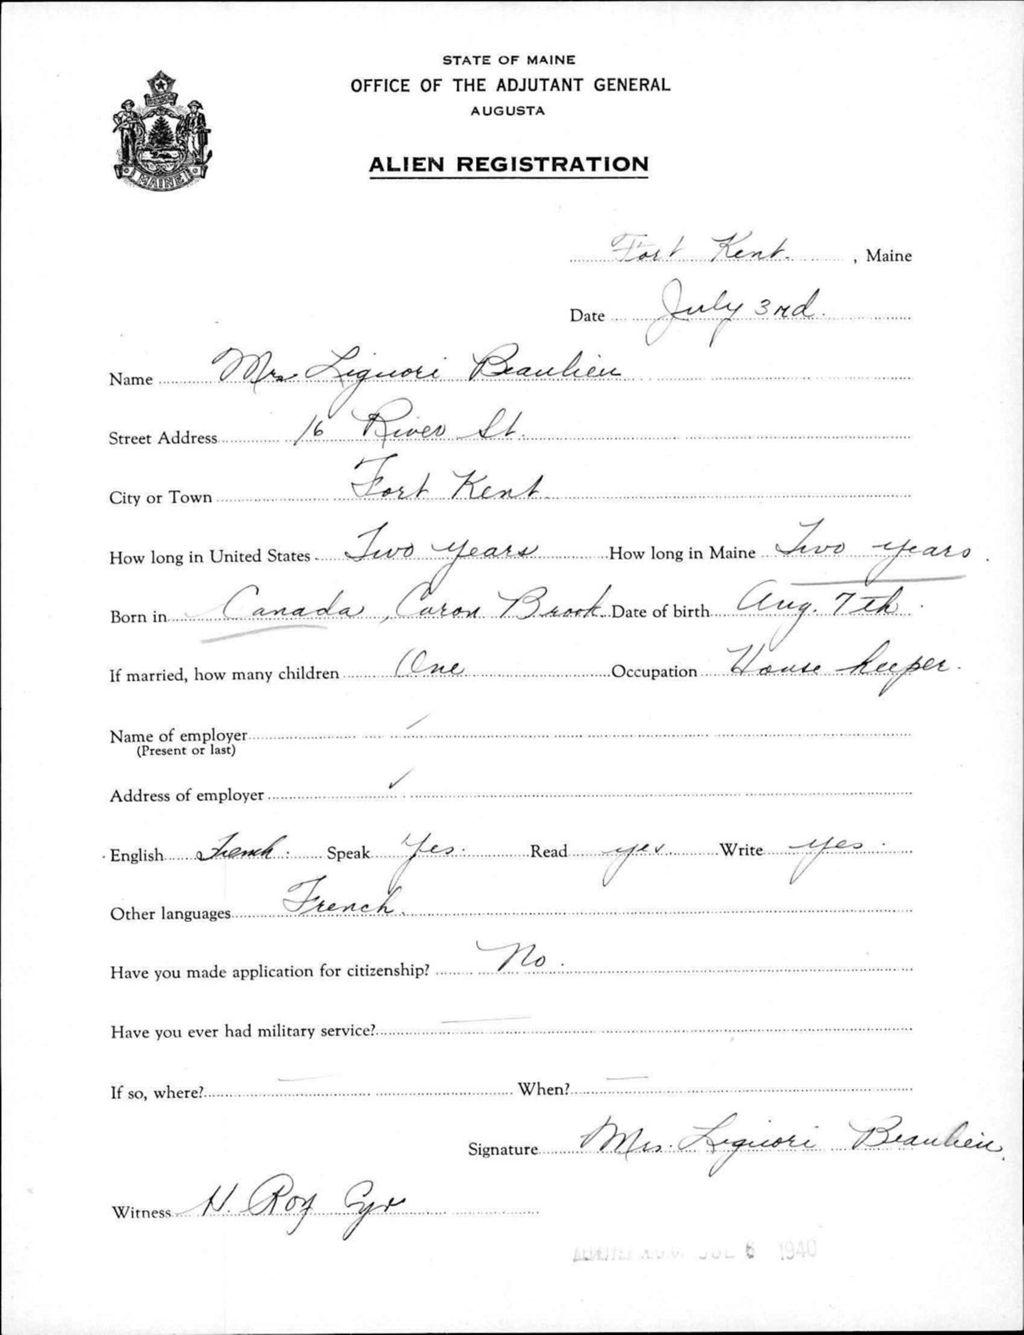 STATE OF MAINE
OFFICE OF THE ADJUTANT GENERAL
AUGUSTA
ALIEN REGISTRATION
MAINE
Fort Kent. , Maine
Date July 3rd.
Name Mrs Liguori Beaulieu
Street Address 16 River St.
City or Town Fort Kent.
How long in United States Two years How long in Maine Two years.
Born in Canada, Caron Brook Date of birth Aug. 7th.
If married, how many children One Occupation House keeper.
Name of employer
(Present or last)
Address of employer
English French. Speak Yes. Read yes Write yes.
Other languages French.
Have you made application for citizenship? No.
Have you ever had military service?
If so, where? When?
Signature Mrs. Liguori Beaulieu.
Witness H. Roy Cyr
6 1940